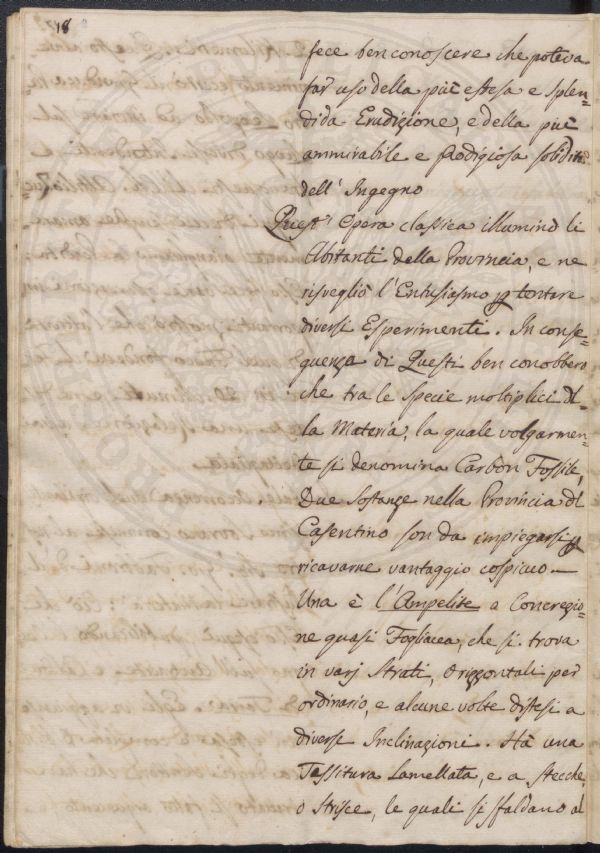 18
fece ben conoscere che poteva
far uso della più estesa e splen-
dida Erudizione, e della più
ammirabile e prodigiosa solidità
dell' Ingegno
Quest' Opera classica illuminò li
Abitanti della Provincia, e ne
risvegliò l'Entusiasmo p tentare
diversi Esperimenti. In conse-
guenza di Questi ben conobbero
che tra le Specie moltiplici di
la Materia, la quale volgarmen-
te si denomina Carbon Fossile,
Due Sostanze nella Provincia di
Casentino son da impiegarsi p
ricavarne vantaggio cospicuo.—
Una è l'Ampelite a Concrezio-
ne quasi Fogliacea, che si trova
in varj Strati, Orizzontali per
ordinario, e alcune volte distesi a
diverse Inclinazioni. Ha una
Tessitura Lamellata, e a stecche,
o Strisce, le quali si sfaldano al